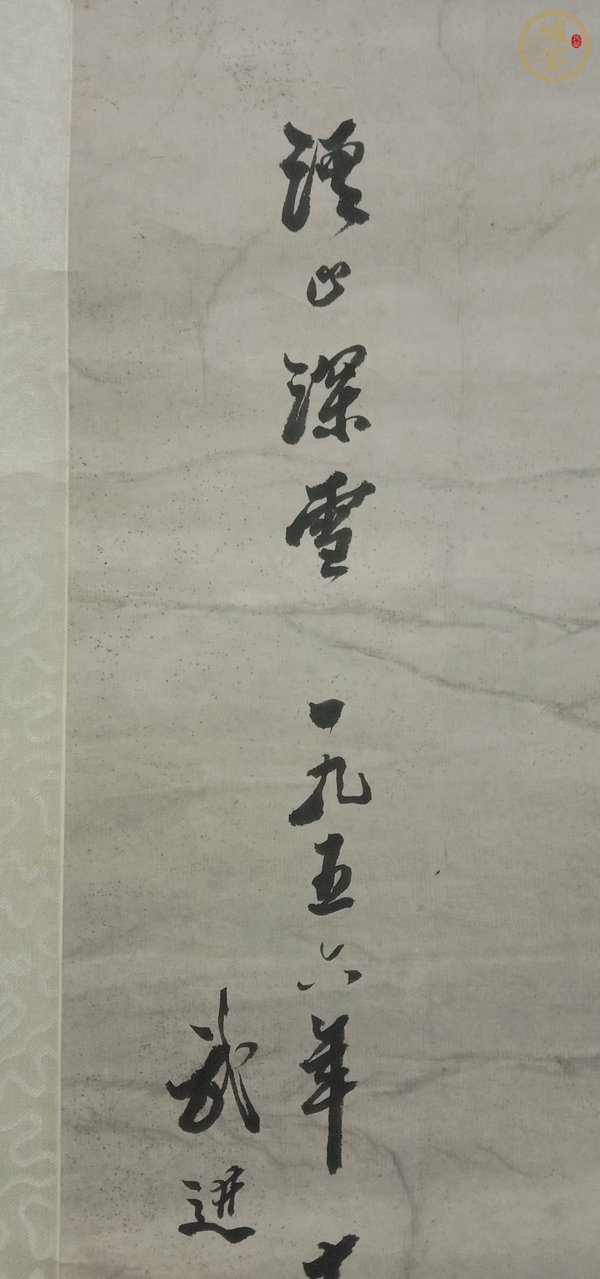 溪山深雪 一九五六年
武進